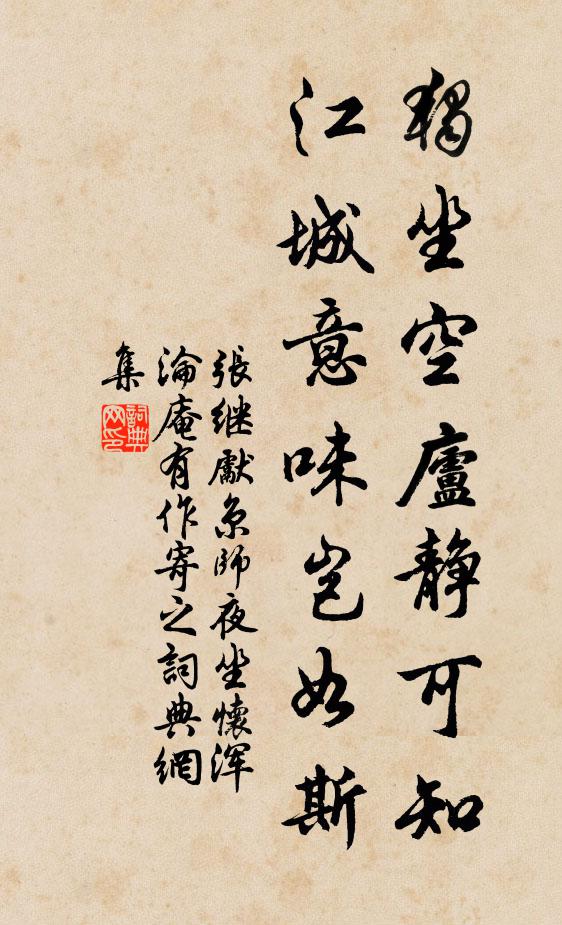 獨坐空廬靜可知
江城意味豈如斯
張繼獻京師夜坐懷渾
淪庵有作寄之詞典網
集
詞典
网印